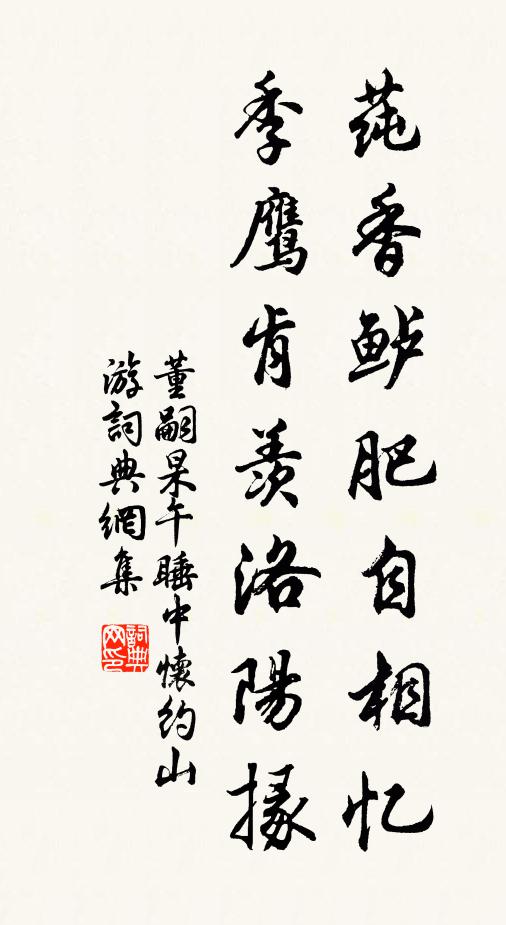 莼香鲈肥自相忆
季鷹肯羨洛陽掾
董嗣杲午睡中懷約山
游詞典網集
詞典网印